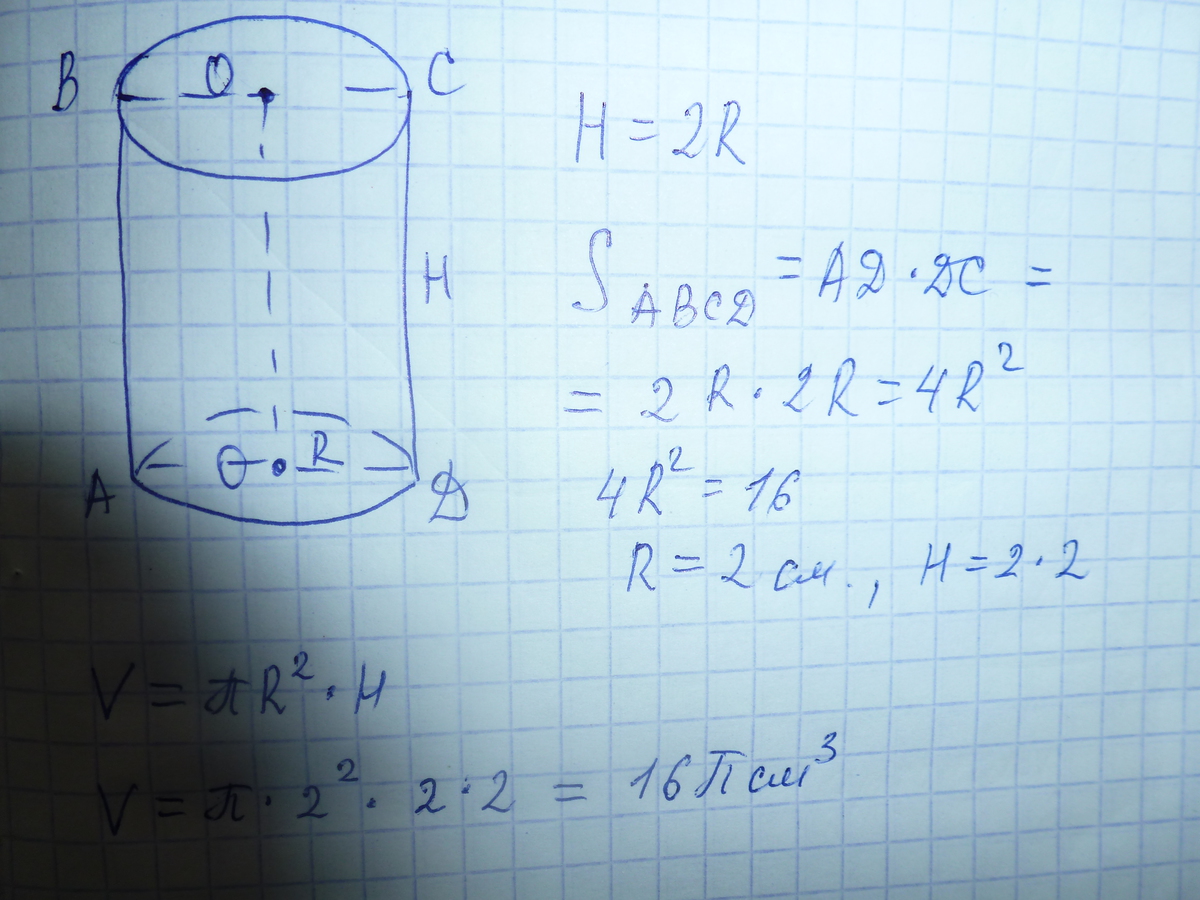 B O C
H = 2R
H
S ABCD = AD · DC =
= 2R · 2R = 4R²
A O R D
4R² = 16
R = 2 см., H = 2 · 2
V = πR² · H
V = π · 2² · 2 · 2 = 16π см³